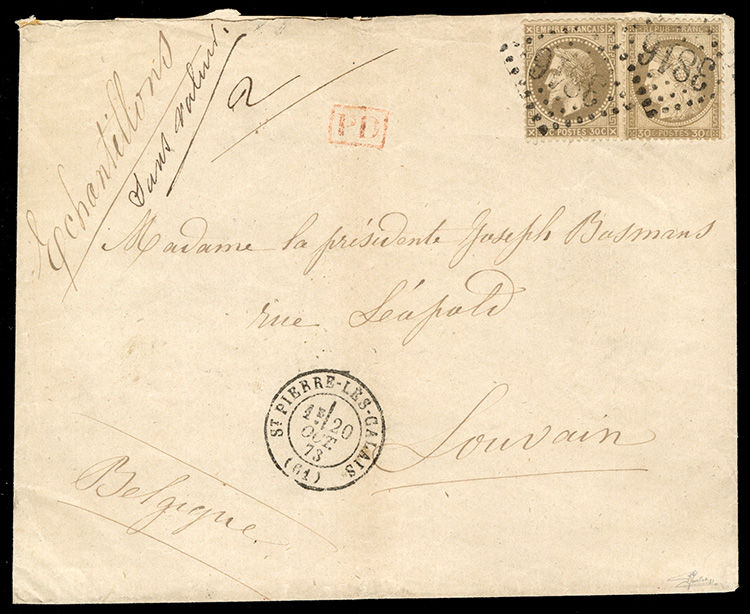 Echantillons
sans valeur.
2
PD
EMPIRE FRANÇAIS
POSTES 30C
REPUB FRANC
30C POSTES 30C
3816
3816
Madame la présidente Joseph Bosmans
rue Léopold
Louvain
Belgique
ST PIERRE-LÈS-CALAIS
1E 20
OCT.
73
(61)